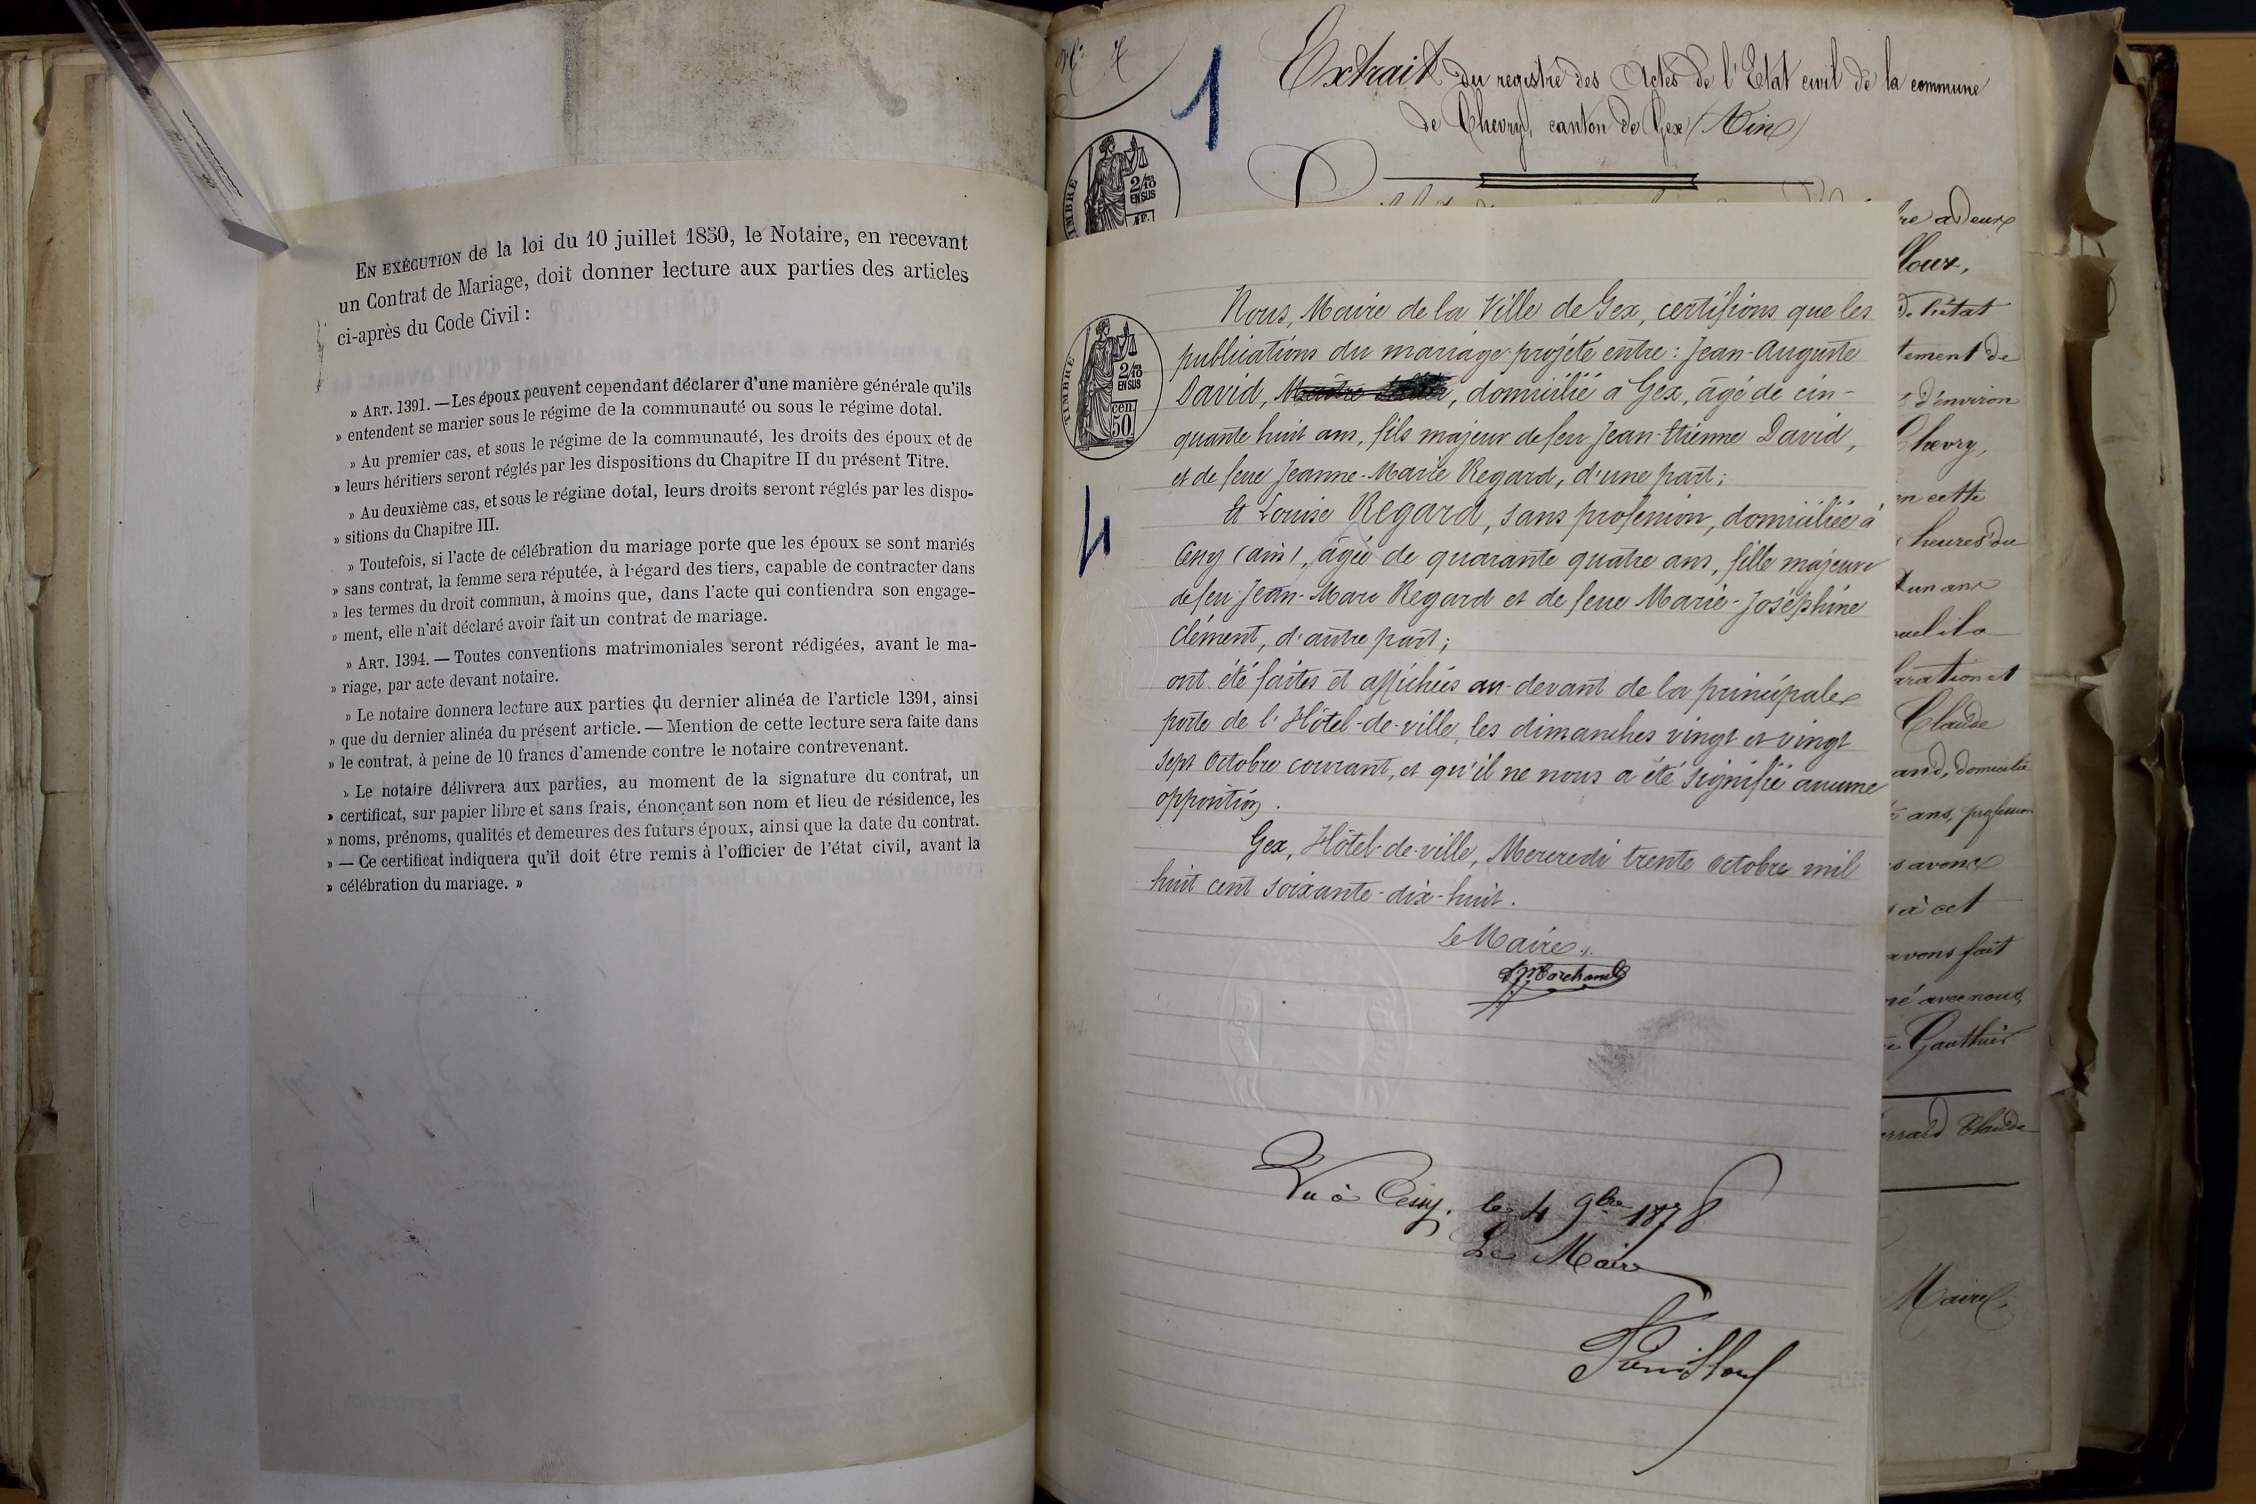 En exécution de la loi du 10 juillet 1850, le Notaire, en recevant
un Contrat de Mariage, doit donner lecture aux parties des articles
ci-après du Code Civil :
» Art. 1391. — Les époux peuvent cependant déclarer d'une manière générale qu'ils
» entendent se marier sous le régime de la communauté ou sous le régime dotal.
» Au premier cas, et sous le régime de la communauté, les droits des époux et de
» leurs héritiers seront réglés par les dispositions du Chapitre II du présent Titre.
» Au deuxième cas, et sous le régime dotal, leurs droits seront réglés par les dispo-
» sitions du Chapitre III.
» Toutefois, si l'acte de célébration du mariage porte que les époux se sont mariés
» sans contrat, la femme sera réputée, à l'égard des tiers, capable de contracter dans
» les termes du droit commun, à moins que, dans l'acte qui contiendra son engage-
» ment, elle n'ait déclaré avoir fait un contrat de mariage.
» Art. 1394. — Toutes conventions matrimoniales seront rédigées, avant le ma-
» riage, par acte devant notaire.
» Le notaire donnera lecture aux parties du dernier alinéa de l'article 1391, ainsi
» que du dernier alinéa du présent article. — Mention de cette lecture sera faite dans
» le contrat, à peine de 10 francs d'amende contre le notaire contrevenant.
» Le notaire délivrera aux parties, au moment de la signature du contrat, un
» certificat, sur papier libre et sans frais, énonçant son nom et lieu de résidence, les
» noms, prénoms, qualités et demeures des futurs époux, ainsi que la date du contrat.
» — Ce certificat indiquera qu'il doit être remis à l'officier de l'état civil, avant la
» célébration du mariage. »
1
Extrait du registre des Actes de l'Etat civil de la commune
de Chevry, canton de Gex (Ain)
TIMBRE
2/10
EN SUS
1F.
Nous, Maire de la Ville de Gex, certifions que les
publications du mariage projeté entre : Jean-Auguste
David, domicilié à Gex, âgé de cin-
quante huit ans, fils majeur de feu Jean-Etienne David,
et de feue Jeanne-Marie Regard, d'une part ;
Et Louise Regard, sans profession, domiciliée à
Cessy (ain), âgée de quarante quatre ans, fille majeure
de feu Jean-Marc Regard et de feue Marie-Joséphine
Clément, d'autre part ;
ont été faites et affichées au-devant de la principale
porte de l'Hôtel-de-ville, les dimanches vingt et vingt
sept Octobre courant, et qu'il ne nous a été signifié aucune
opposition.
Gex, Hôtel-de-ville, Mercredi trente Octobre mil
huit cent soixante-dix-huit.
Le Maire
Marchand
TIMBRE
2/10
EN SUS
cen.
50
4
Vu à Cessy, le 4 9bre 1878
Le Maire
re a deux
De l'état
tement de
d'environ
Chevry,
en cette
heures du
un ans
aration et
Claude
and, domicilié
ans, profession
s avons
à cet
avons fait
avec nous,
Gauthier
Claude
Maire,